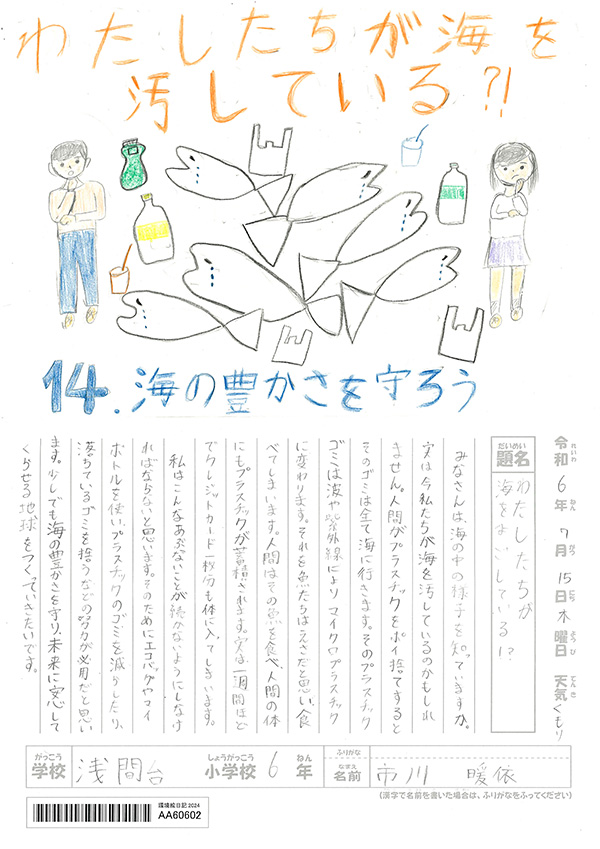 わたしたちが海を
汚している?!
14.海の豊かさを守ろう
令和6年7月15日木曜日 天気くもり
れいわ ねん がつ にち ようび てんき
だいめい
題名
わたしたちが
海をよごしている!?
みなさんは、海の中の様子を知っていますか。
実は今私たちが海を汚しているのかもしれ
ません。人間がプラスチックをポイ捨てすると
そのゴミは全て海に行きます。そのプラスチック
ゴミは波や紫外線によりマイクロプラスチック
に変わります。それを魚たちはえさだと思い、食
べてしまいます。人間はその魚を食べ、人間の体
にもプラスチックが蓄積されます。実は一週間ほど
でクレジットカード一枚分も体に入ってしまいます。
私はこんなあぶないことが続かないようにしなけ
ればならないと思います。そのためにエコバッグやマイ
ボトルを使い、プラスチックのゴミを減らしたり、
落ちているゴミを捨う などの努力が必用だと思い
ます。少しでも海の豊かさを守り、未来に安心して
くらせる地球をつくっていきたいです。
がっこう
学校
浅間台
しょうがっこう
小学校
6
ねん
年
ふりがな
なまえ
名前
市川 暖依
(漢字で名前を書いた場合は、ふりがなをふってください)
環境絵日記 2024
AA60602